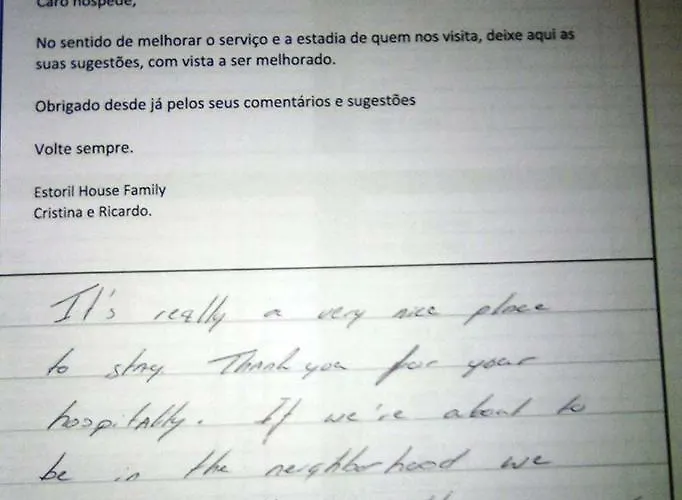 Caro hóspede,
No sentido de melhorar o serviço e a estadia de quem nos visita, deixe aqui as
suas sugestões, com vista a ser melhorado.
Obrigado desde já pelos seus comentários e sugestões
Volte sempre.
Estoril House Family
Cristina e Ricardo.
It's really a very nice place
to stay Thank you for your
hospitality. If we're about to
be in the neighborhood we